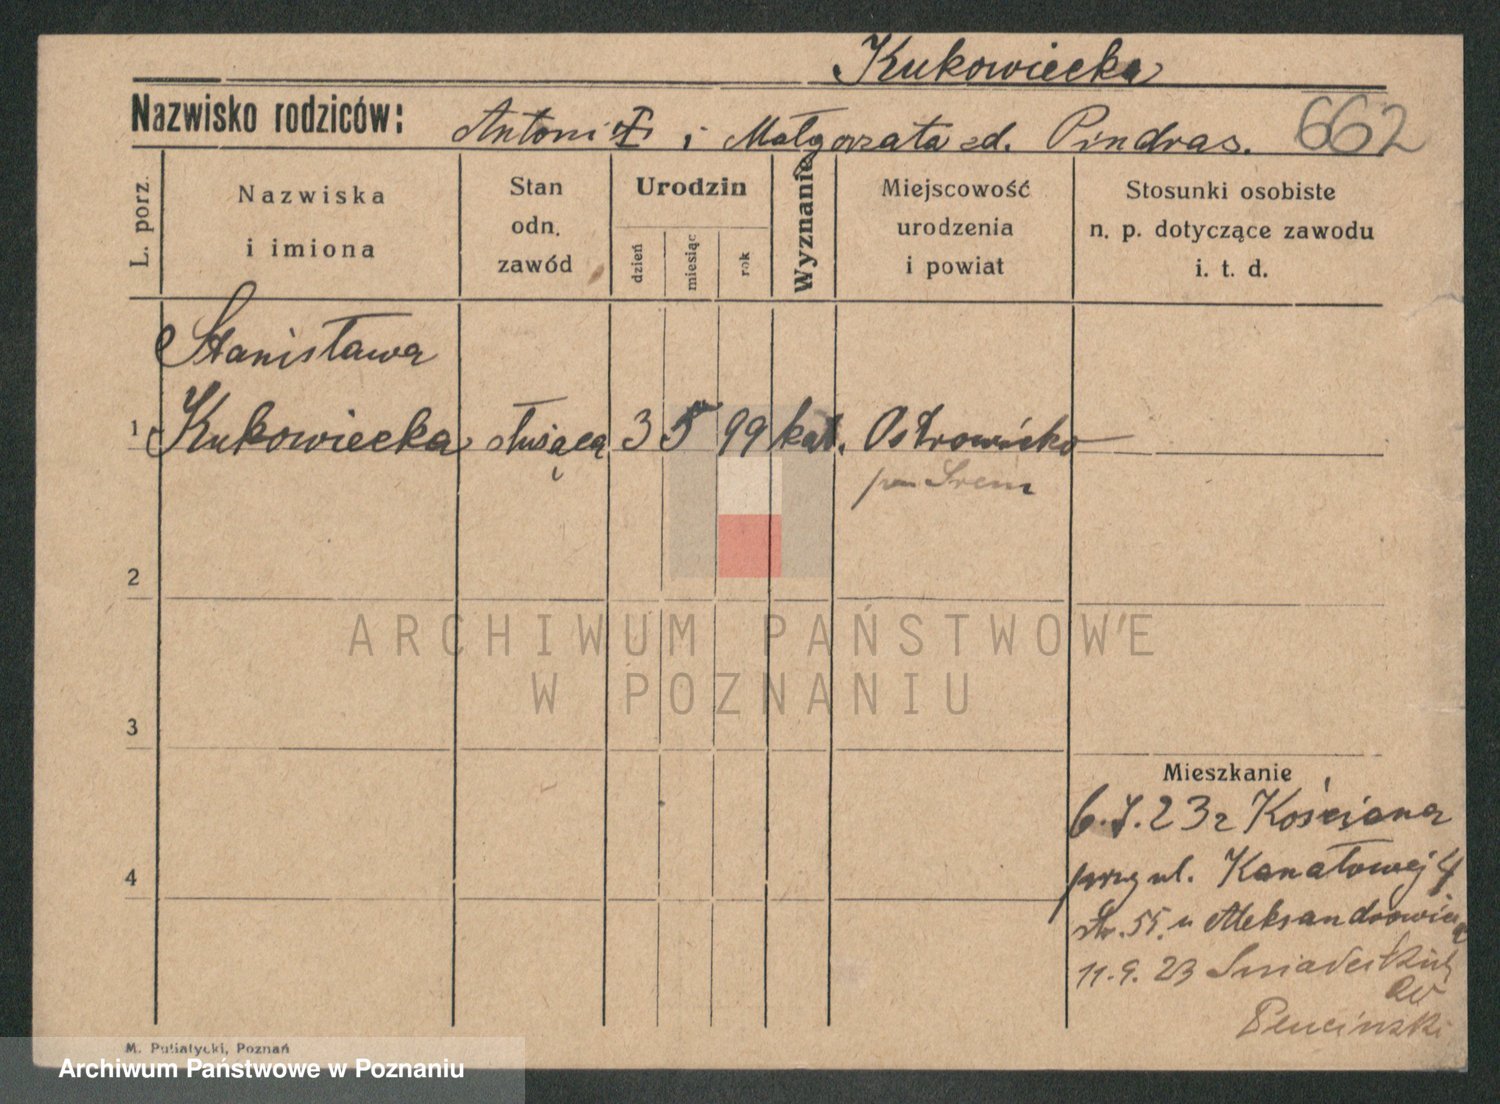 Kukowiecka
Nazwisko rodziców: Antoni i Małgorzata zd. Pindras. 662
L. porz.
Nazwiska
i imiona
Stan
odn.
zawód
Urodzin
dzień
miesiąc
rok
Wyznanie
Miejscowość
urodzenia
i powiat
Stosunki osobiste
n. p. dotyczące zawodu
i. t. d.
Stanisława
1 Kukowiecka służąca 3 5 99 kat. Ostrowieczko
pow Śrem
2
ARCHIWUM PAŃSTWOWE
W POZNANIU
3
Mieszkanie
6.7.23 z Kościana
4 przy ul. Kanałowej 4
str. 55. u Aleksandrowicz
11.9.23 Śniadeckich
Plucinski
M. Putiatycki, Poznań
Archiwum Państwowe w Poznaniu